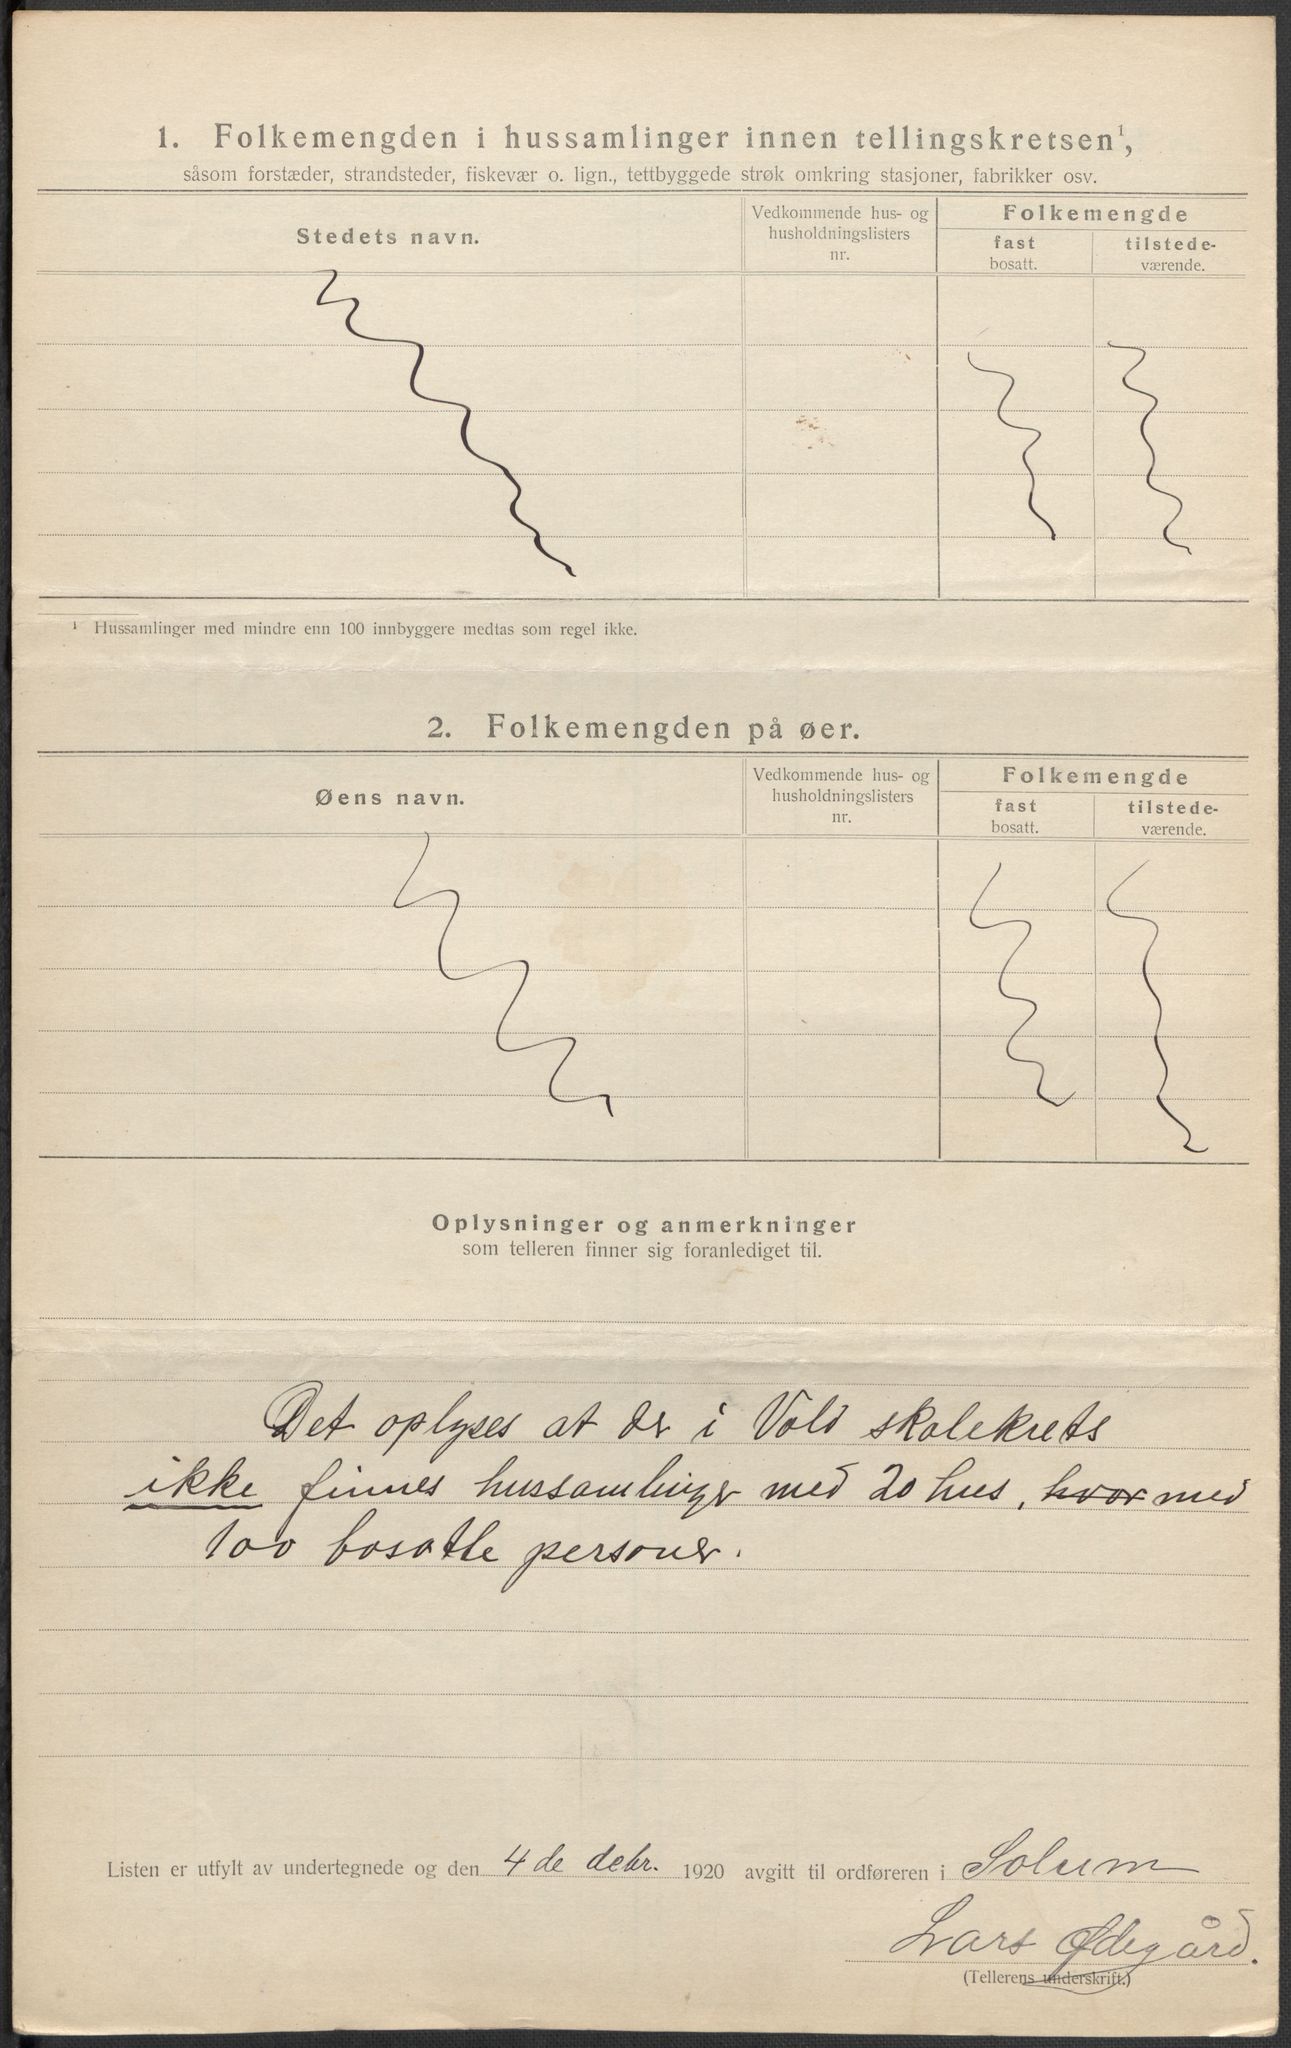 1. Folkemengden i hussamlinger innen tellingskretsen¹,
såsom forstæder, strandsteder, fiskevær o. lign., tettbyggede strøk omkring stasjoner, fabrikker osv.
Stedets navn.
Vedkommende hus- og
husholdningslisters
nr.
Folkemengde
fast
bosatt.
tilstede-
værende.
¹ Hussamlinger med mindre enn 100 innbyggere medtas som regel ikke.
2. Folkemengden på øer.
Øens navn.
Vedkommende hus- og
husholdningslisters
nr.
Folkemengde
fast
bosatt.
tilstede-
værende.
Oplysninger og anmerkninger
som telleren finner sig foranlediget til.
Det oplyses at der i Vold skolekrets
ikke finnes hussamlinger med 20 hus, hvor med
100 bosatte personer.
Listen er utfylt av undertegnede og den 4 de debr. 1920 avgitt til ordføreren i Solum
Lars Ødegård.
(Tellerens underskrift.)